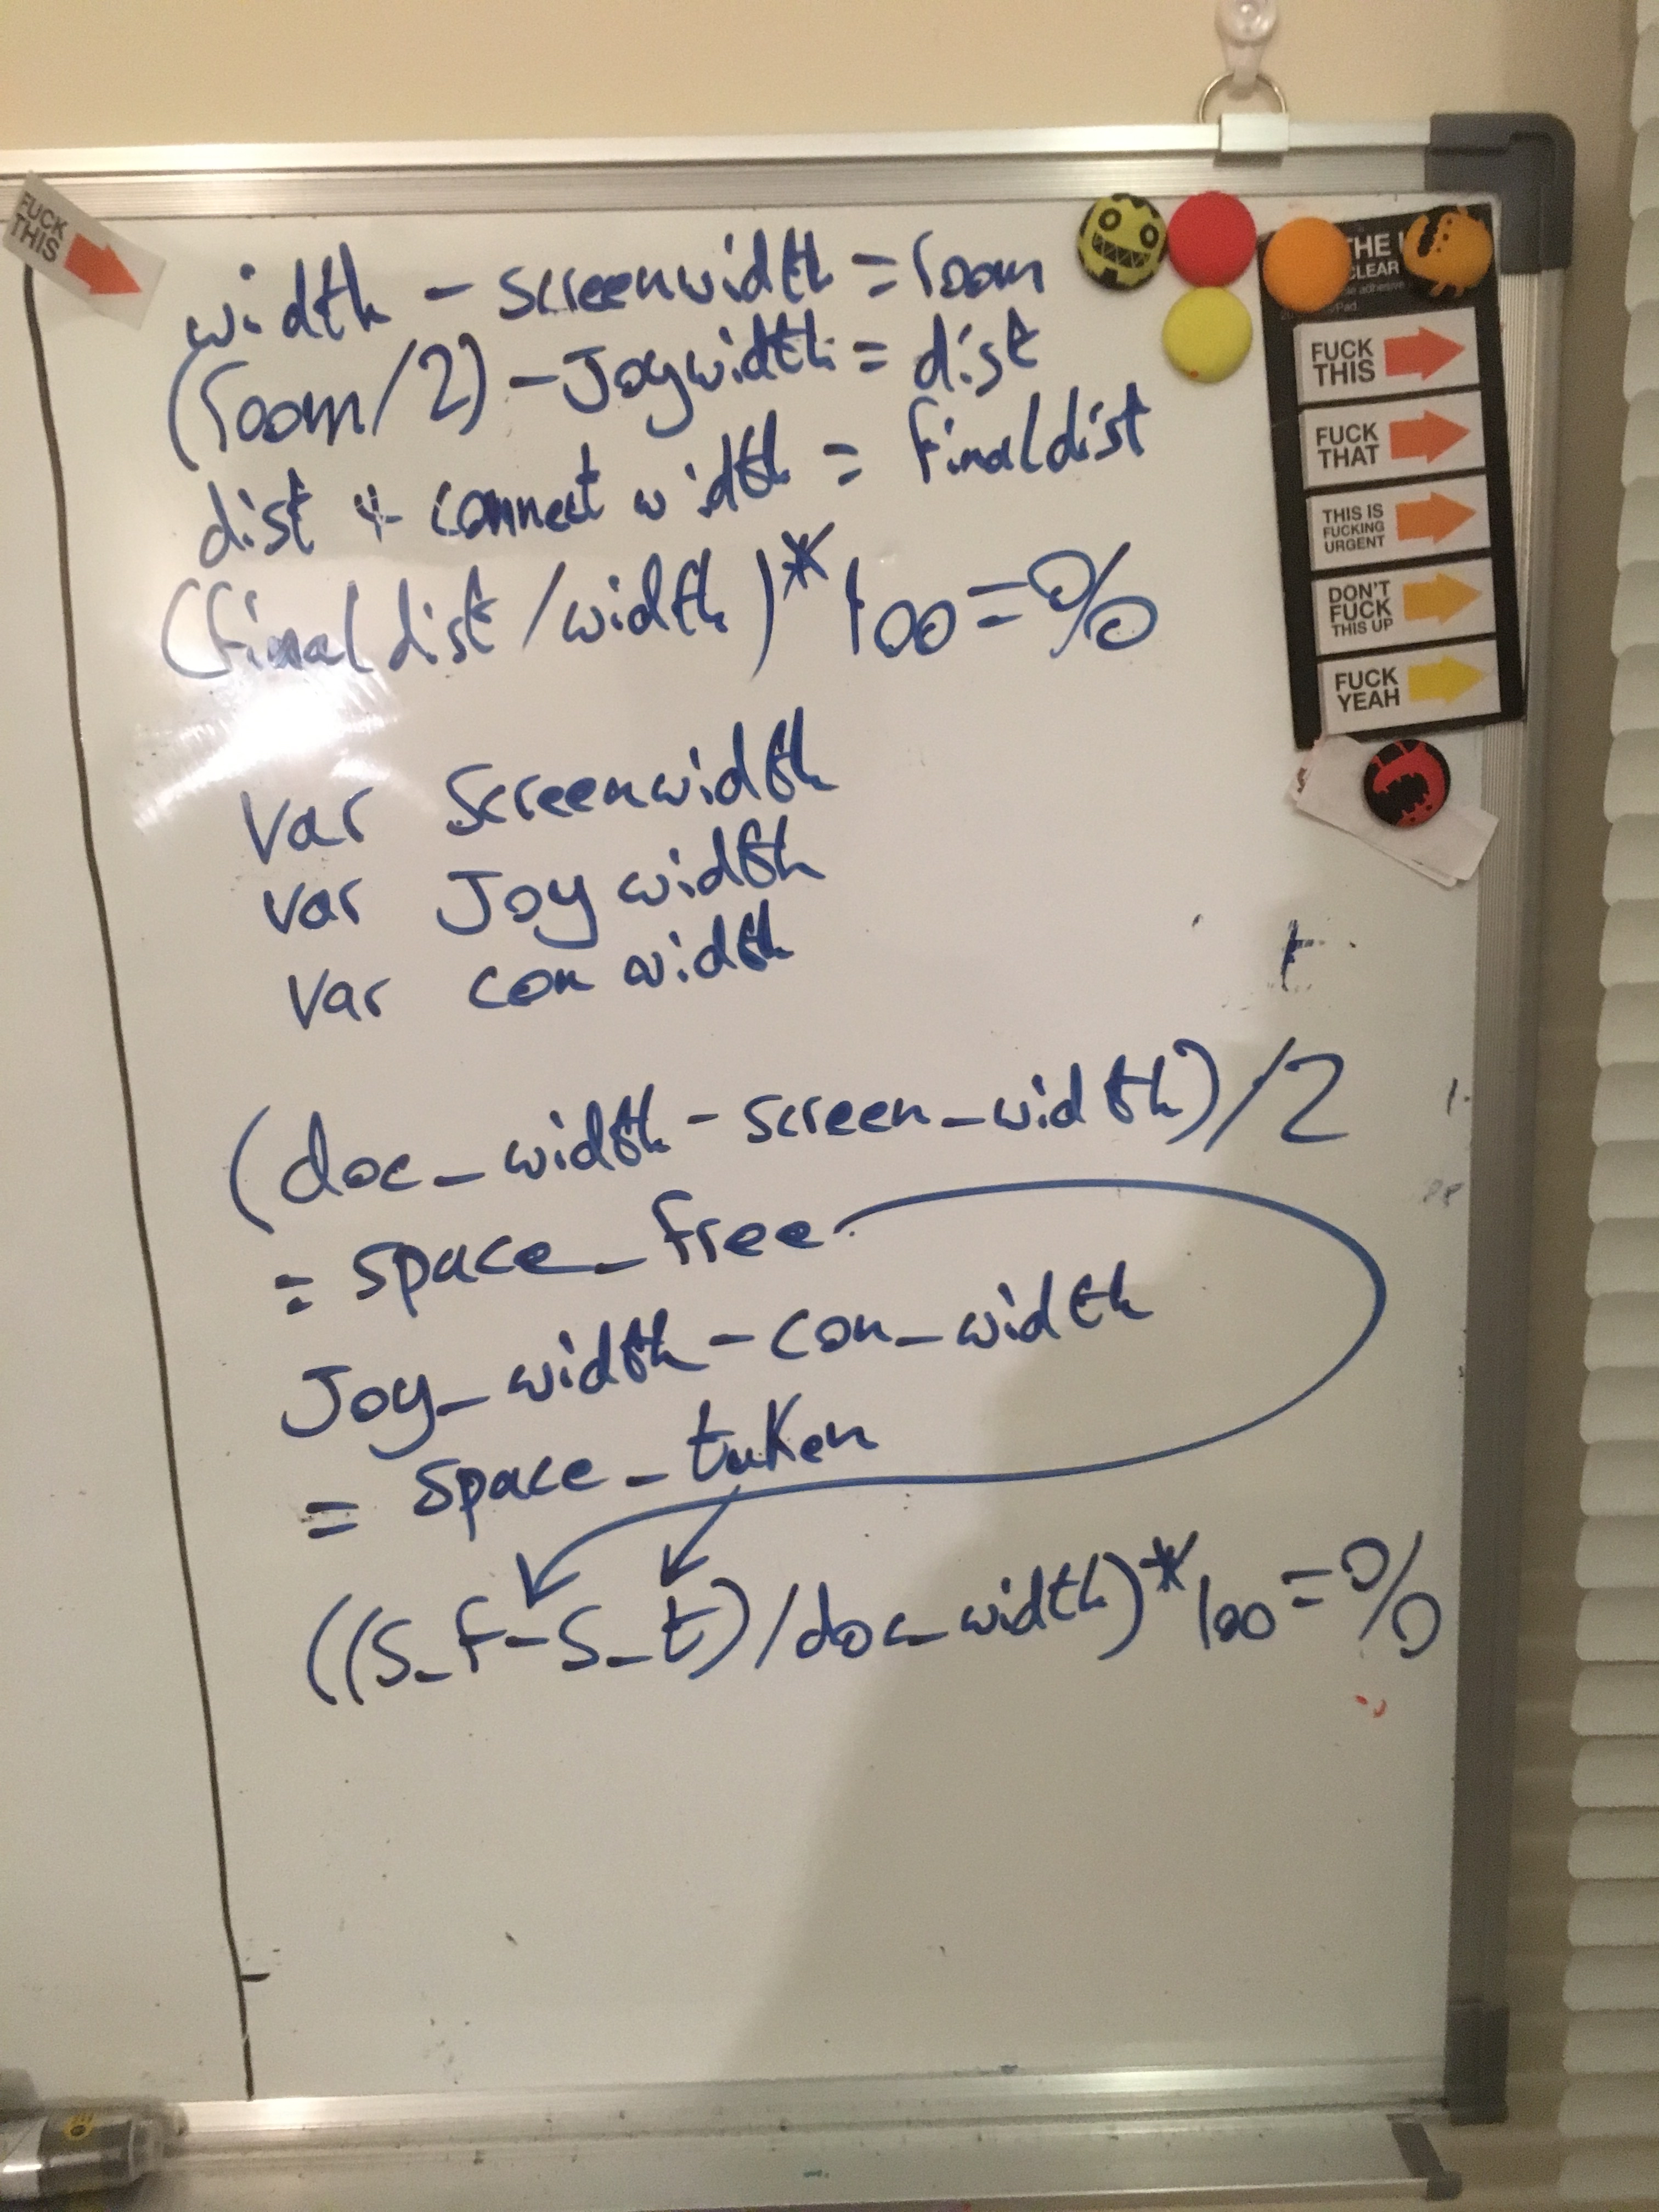 FUCK
THIS
width - screenwidth = room
(room/2) - Joywidth = dist
dist + connect width = finaldist
(finaldist/width)*100=%
var screenwidth
var Joy width
var con width
t
(doc_width - screen_width)/2
= space_free
Joy_width - con_width
= space_taken
((s_f-s_t)/doc_width)*100=%
THE
CLEAR
adhesive
Pad
FUCK
THIS
FUCK
THAT
THIS IS
FUCKING
URGENT
DON'T
FUCK
THIS UP
FUCK
YEAH